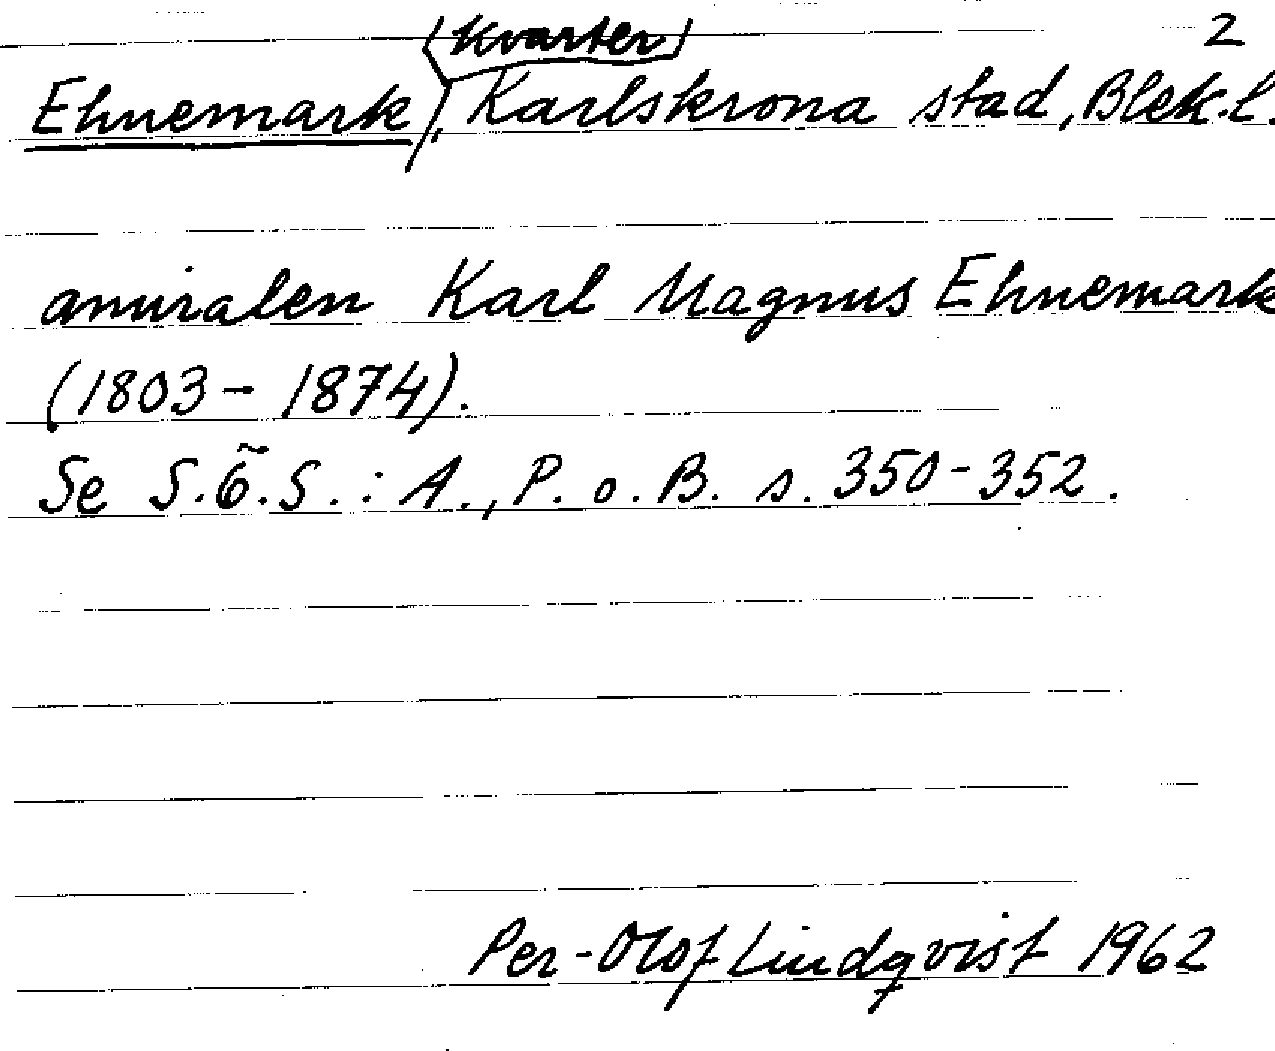 2
(kvarter)
Ehnemark, Karlskrona stad, Blek.l.
amiralen Karl Magnus Ehnemark
(1803-1874).
Se S.Ö.S.: A., P. o. B. s. 350-352.
Per-Olof Lindqvist 1962